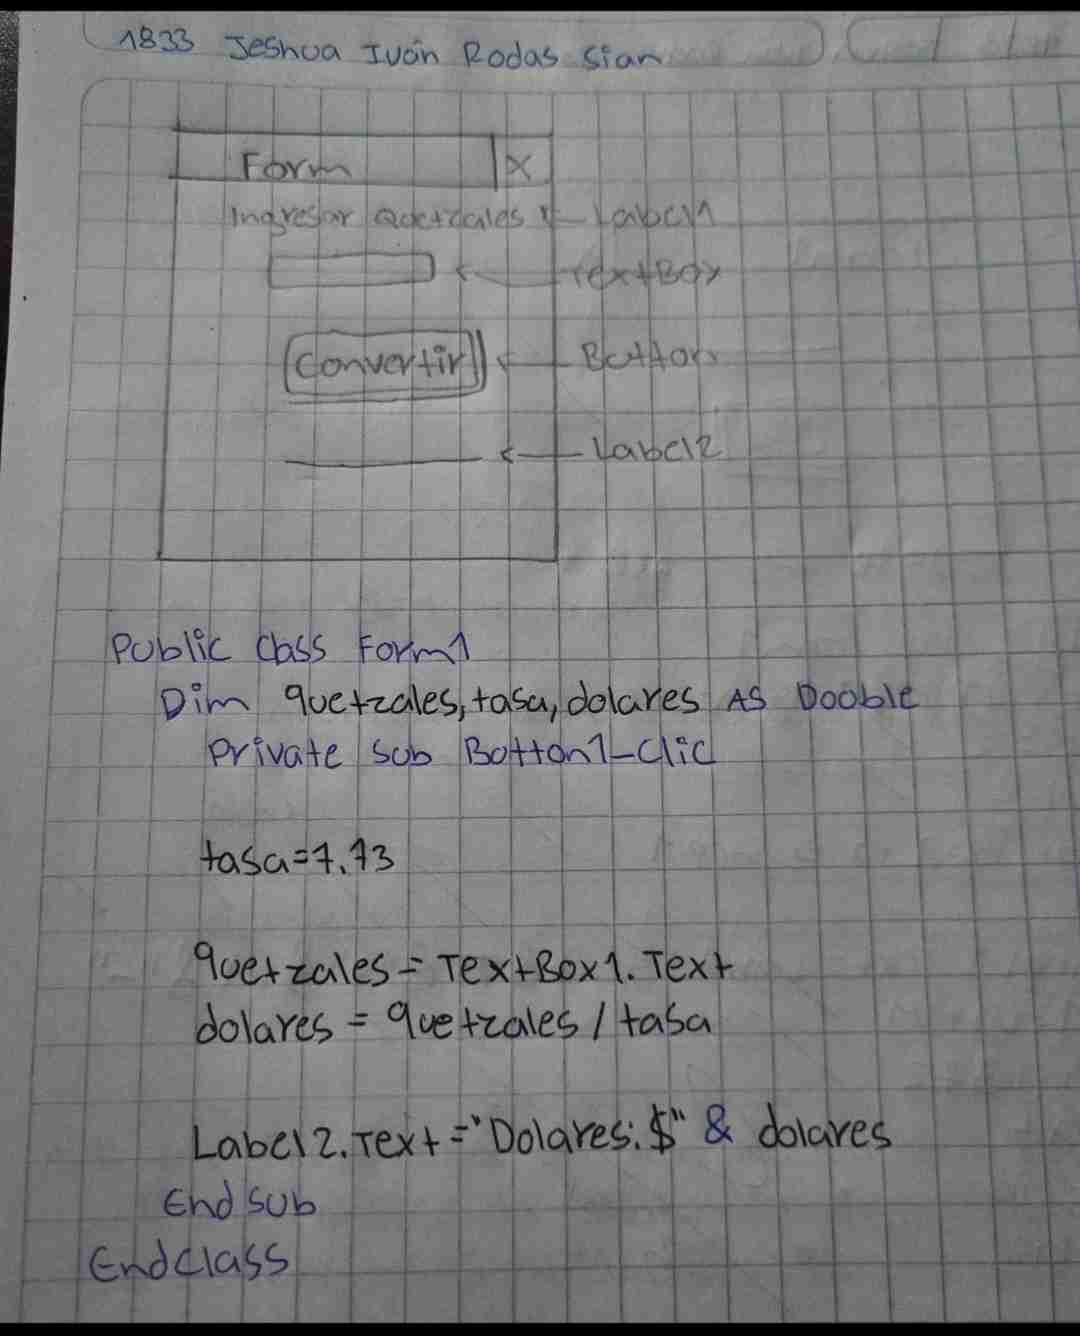 1833 Jeshua Iván Rodas Sian
Form X
Ingresar Quetzales Label1
TextBox
Convertir Button
Label2
Public Class Form1
Dim quetzales, tasa, dolares As Double
Private Sub Button1-Clic
tasa=7.73
quetzales = TextBox1.Text
dolares = quetzales / tasa
Label2.Text = "Dolares: $" & dolares
End Sub
End Class